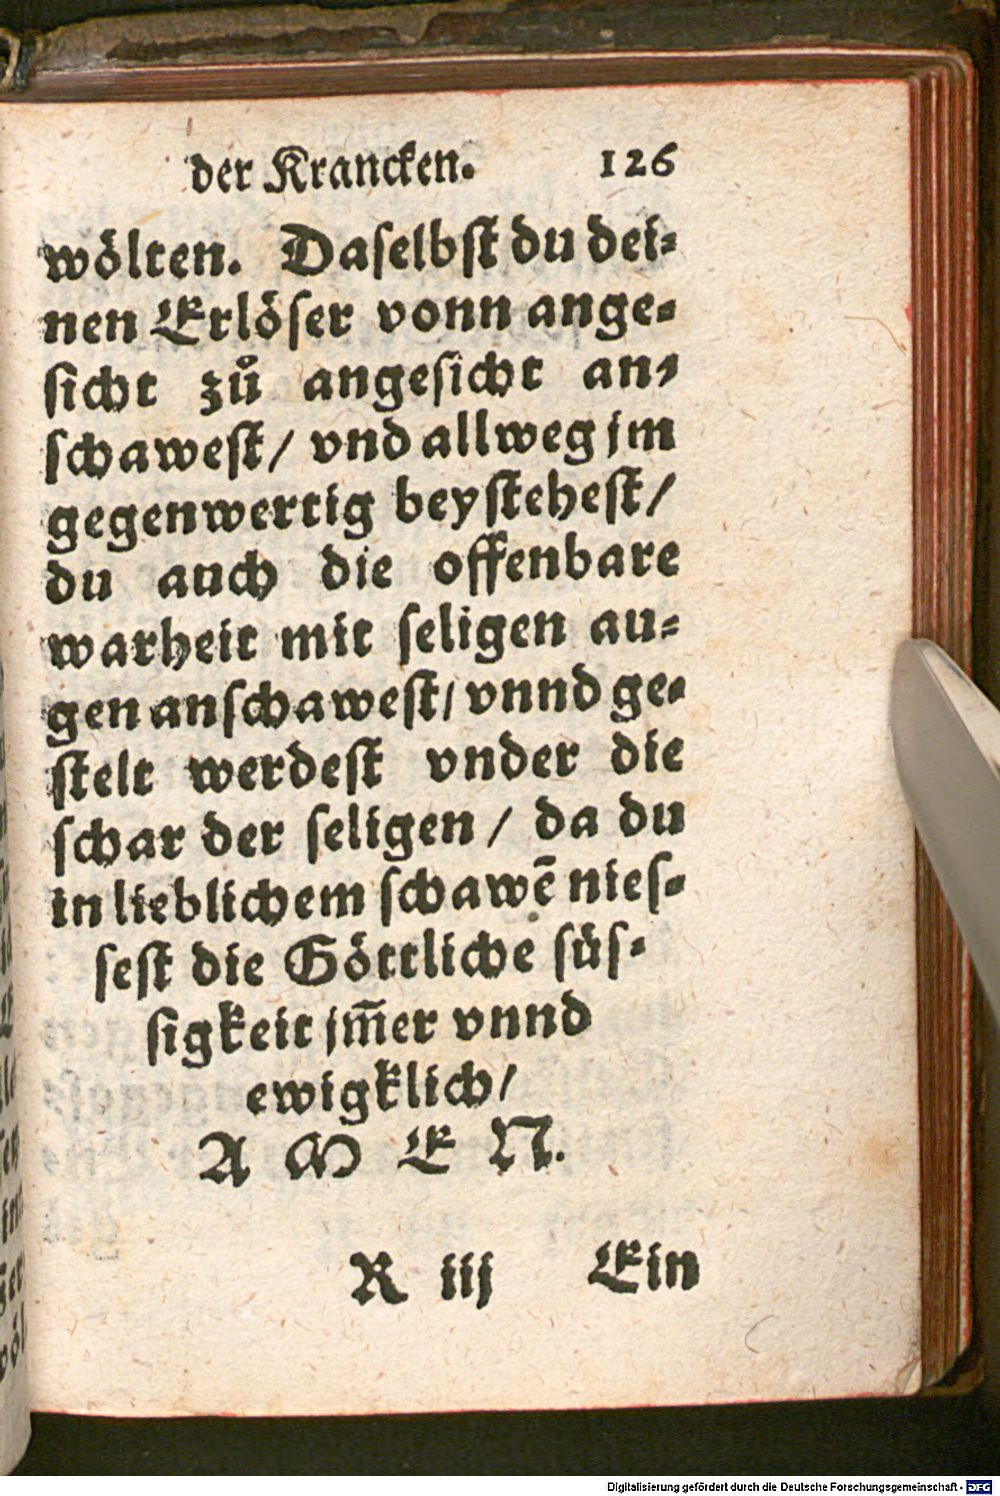 der Krancken. 126
wölten. Daſelbſt du dei⸗
nen Erlöſer vonn ange⸗
ſicht zů angeſicht an⸗
ſchaweſt/ vnd allweg jm
gegenwertig beyſteheſt/
du auch die offenbare
warheit mit ſeligen au⸗
gen anſchaweſt/ vnnd ge⸗
ſtelt werdeſt vnder die
ſchar der ſeligen/ da du
in lieblichem ſchawē nieſ⸗
ſeſt die Göttliche ſüſ⸗
ſigkeit jm̄er vnnd
ewigklich/
A M E N.
R iij Ein
Digitalisierung gefördert durch die Deutsche Forschungsgemeinschaft - DFG